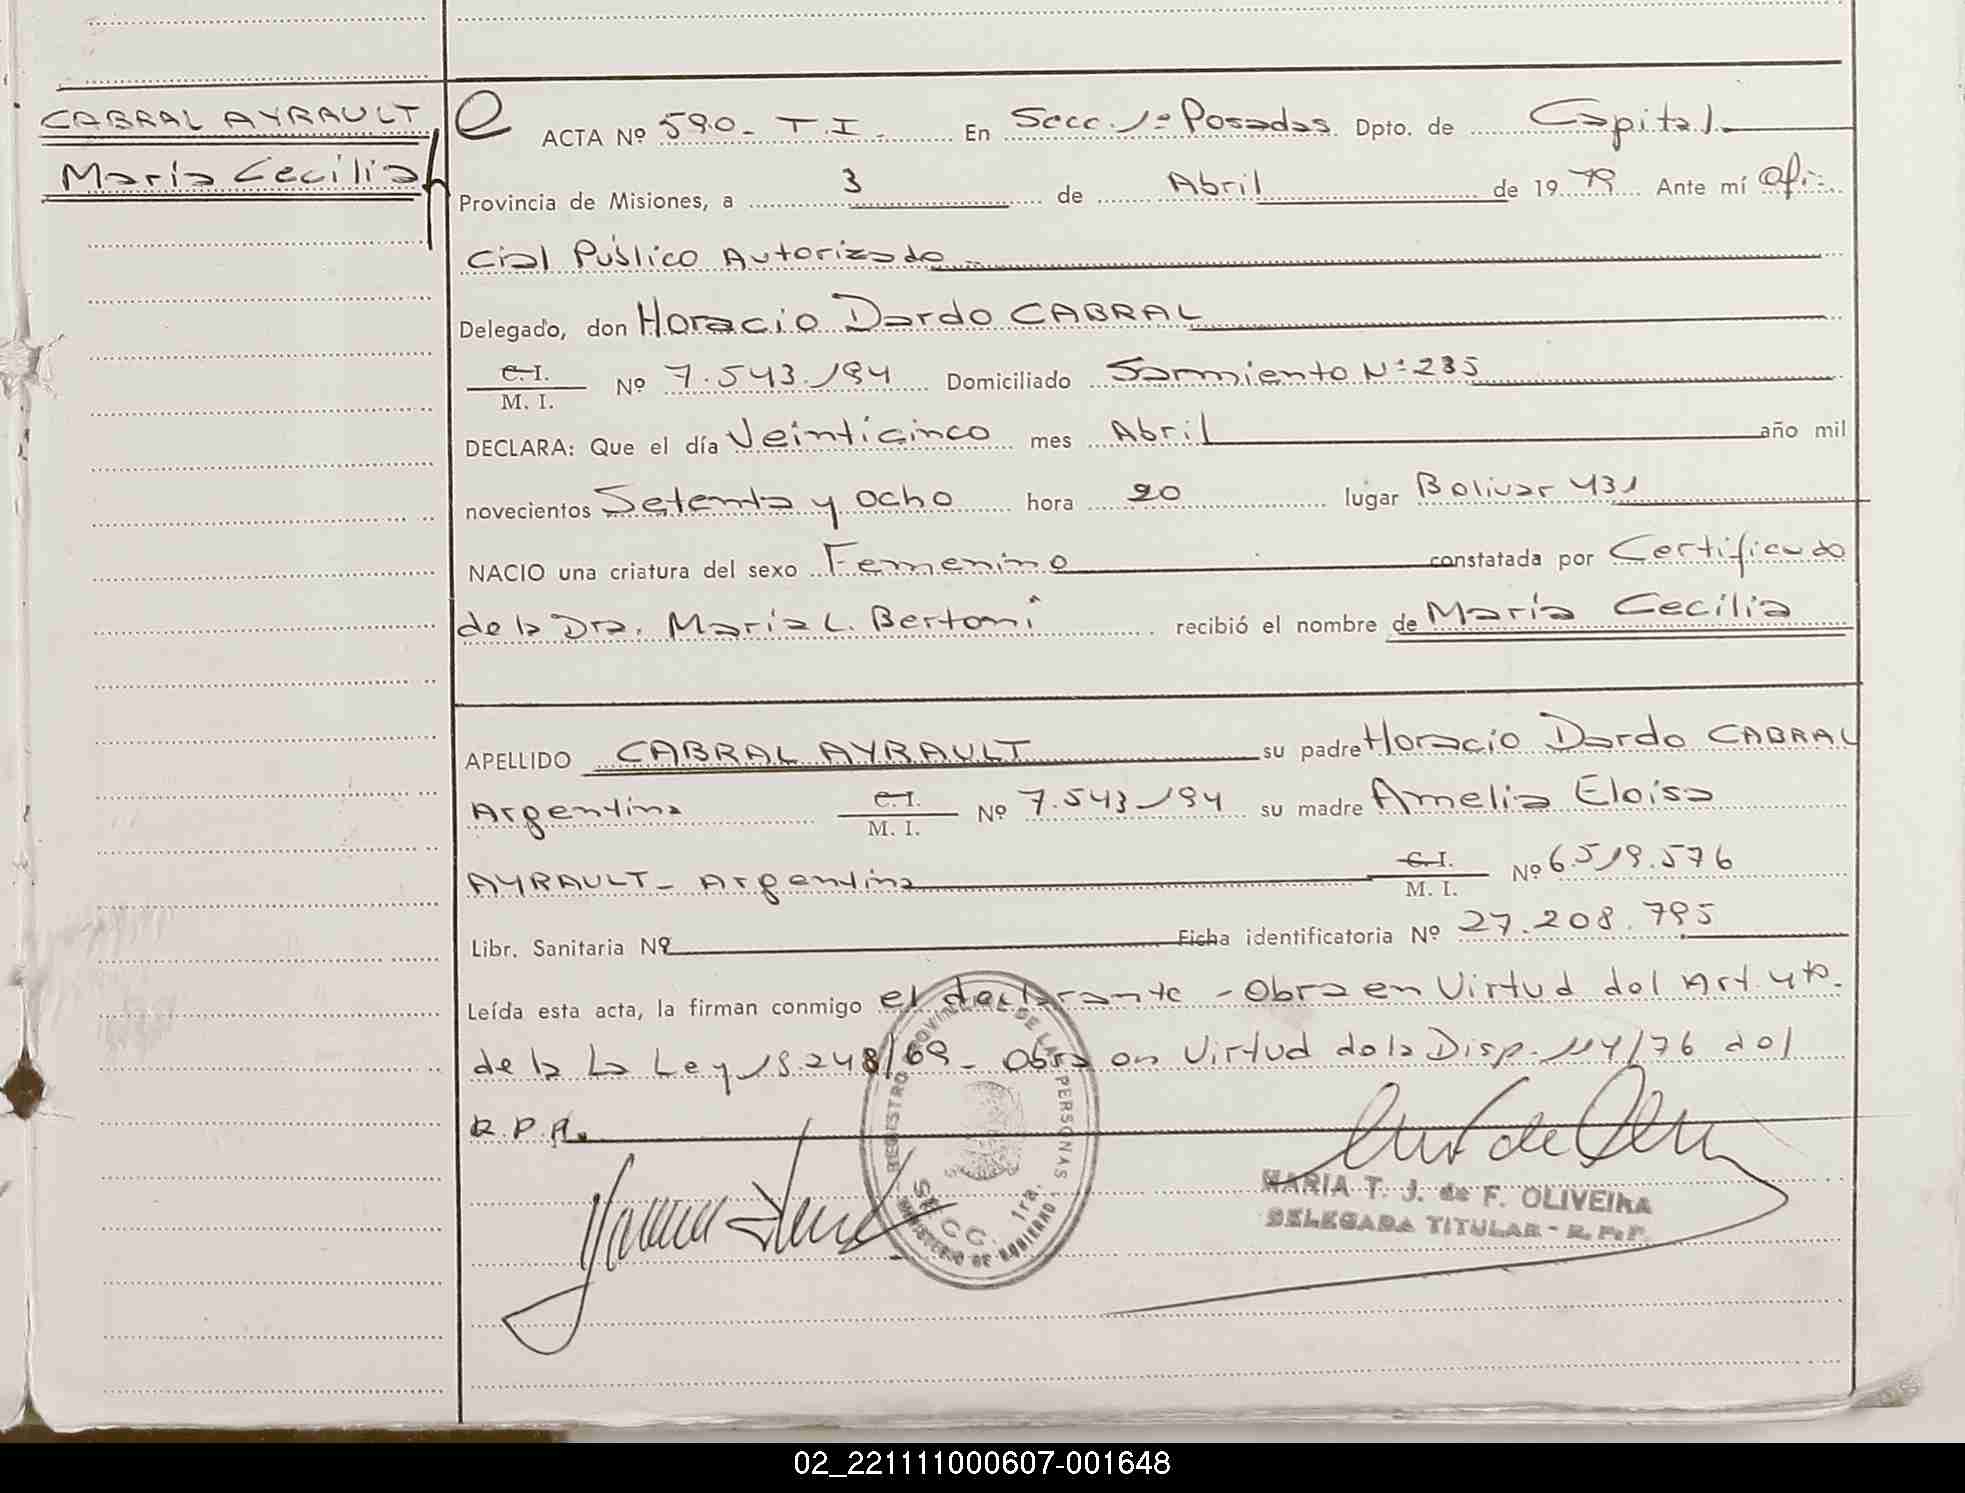 CABRAL AYRAULT
María Cecilia
ACTA Nº 590- T.I. En Secc. 1ª Posadas Dpto. de Capital.
Provincia de Misiones, a 3 de Abril de 1979 Ante mí Ofi-
cial Público Autorizado
Delegado, don Horacio Dardo CABRAL
C.I.
M. I. Nº 7.543.194 Domiciliado Sarmiento Nº 235
DECLARA: Que el día Veinticinco mes Abril año mil
novecientos Setenta y Ocho hora 20 lugar Bolivar 431
NACIO una criatura del sexo Femenino constatada por Certificado
de la Dra. María L. Bertoni recibió el nombre de María Cecilia
APELLIDO CABRAL AYRAULT su padre Horacio Dardo CABRAL
Argentina C.I.
M. I. Nº 7.543.194 su madre Amelia Eloisa
AYRAULT- Argentina C.I.
M. I. Nº 6.519.576
Libr. Sanitaria Nº Ficha identificatoria Nº 27.208.795
Leída esta acta, la firman conmigo el declarante - Obra en Virtud del Art. 4to.
de la La Ley 18.248/69- Obra en Virtud de la Disp. 114/76 del
R.P.P.
REGISTRO PROVINCIAL DE LAS PERSONAS
SECC. 1ra.
MINISTERIO DE GOBIERNO
MARIA T. J. de F. OLIVEIRA
DELEGADA TITULAR - R.P.P.
02_221111000607-001648